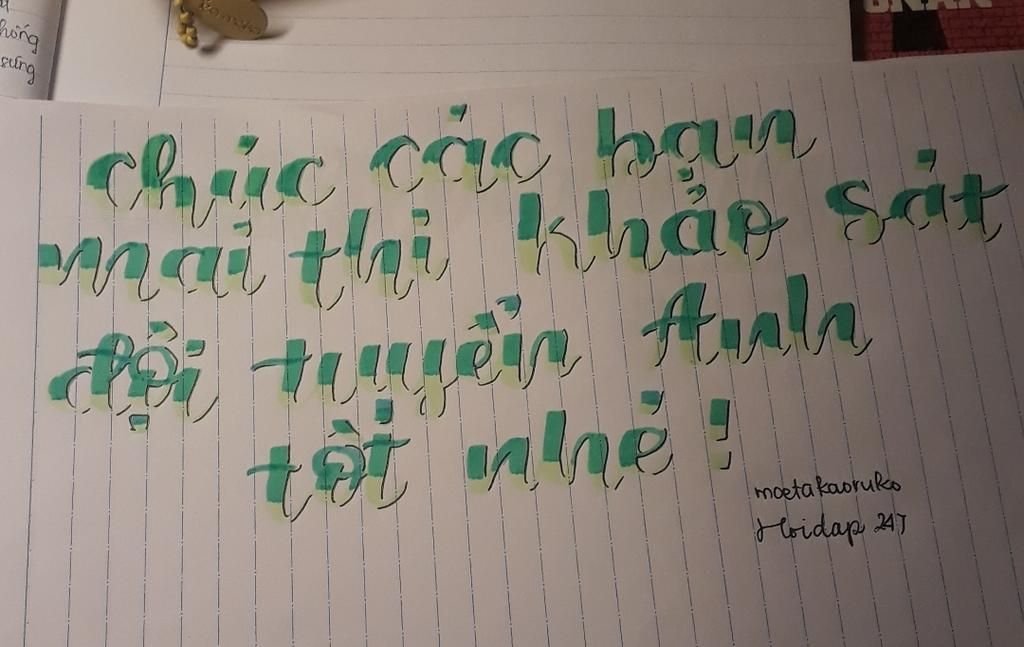 hống
sưng
chúc các bạn
mai thi khảo sát
đội tuyển Anh
tốt nhé !
moetakaoruko
Hoidap 247